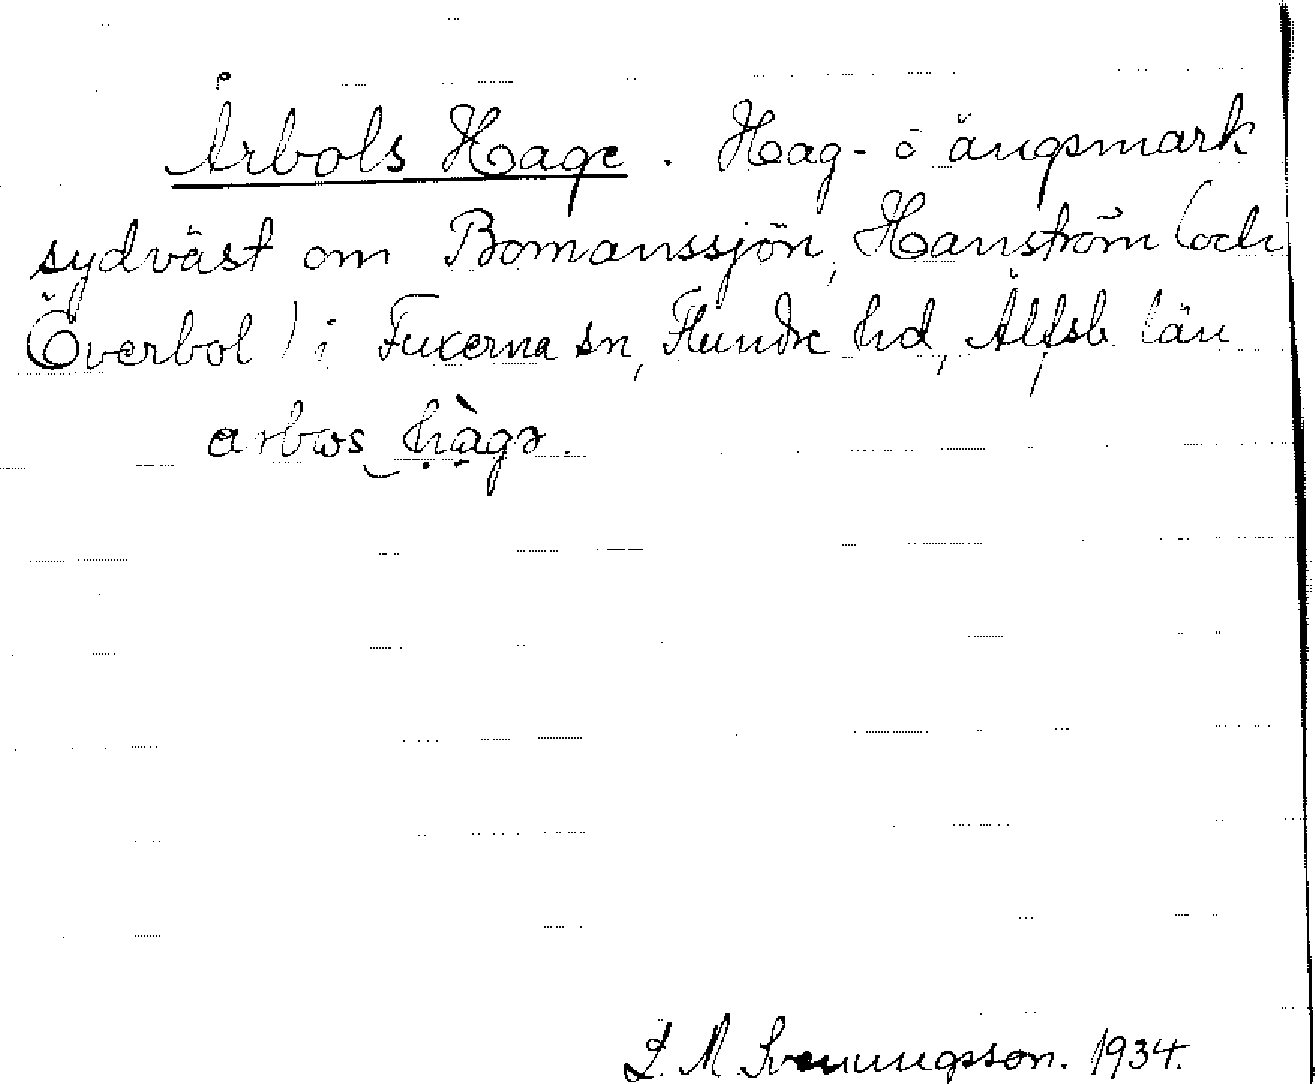 Årbols Hage. Hag- o ängsmark
sydväst om Bomanssjön, Hanström (och
Överbol) i Fuxerna sn, Flundre hd, Älfsb. län
arbωs hàgə.
L. M. Svenungsson. 1934.